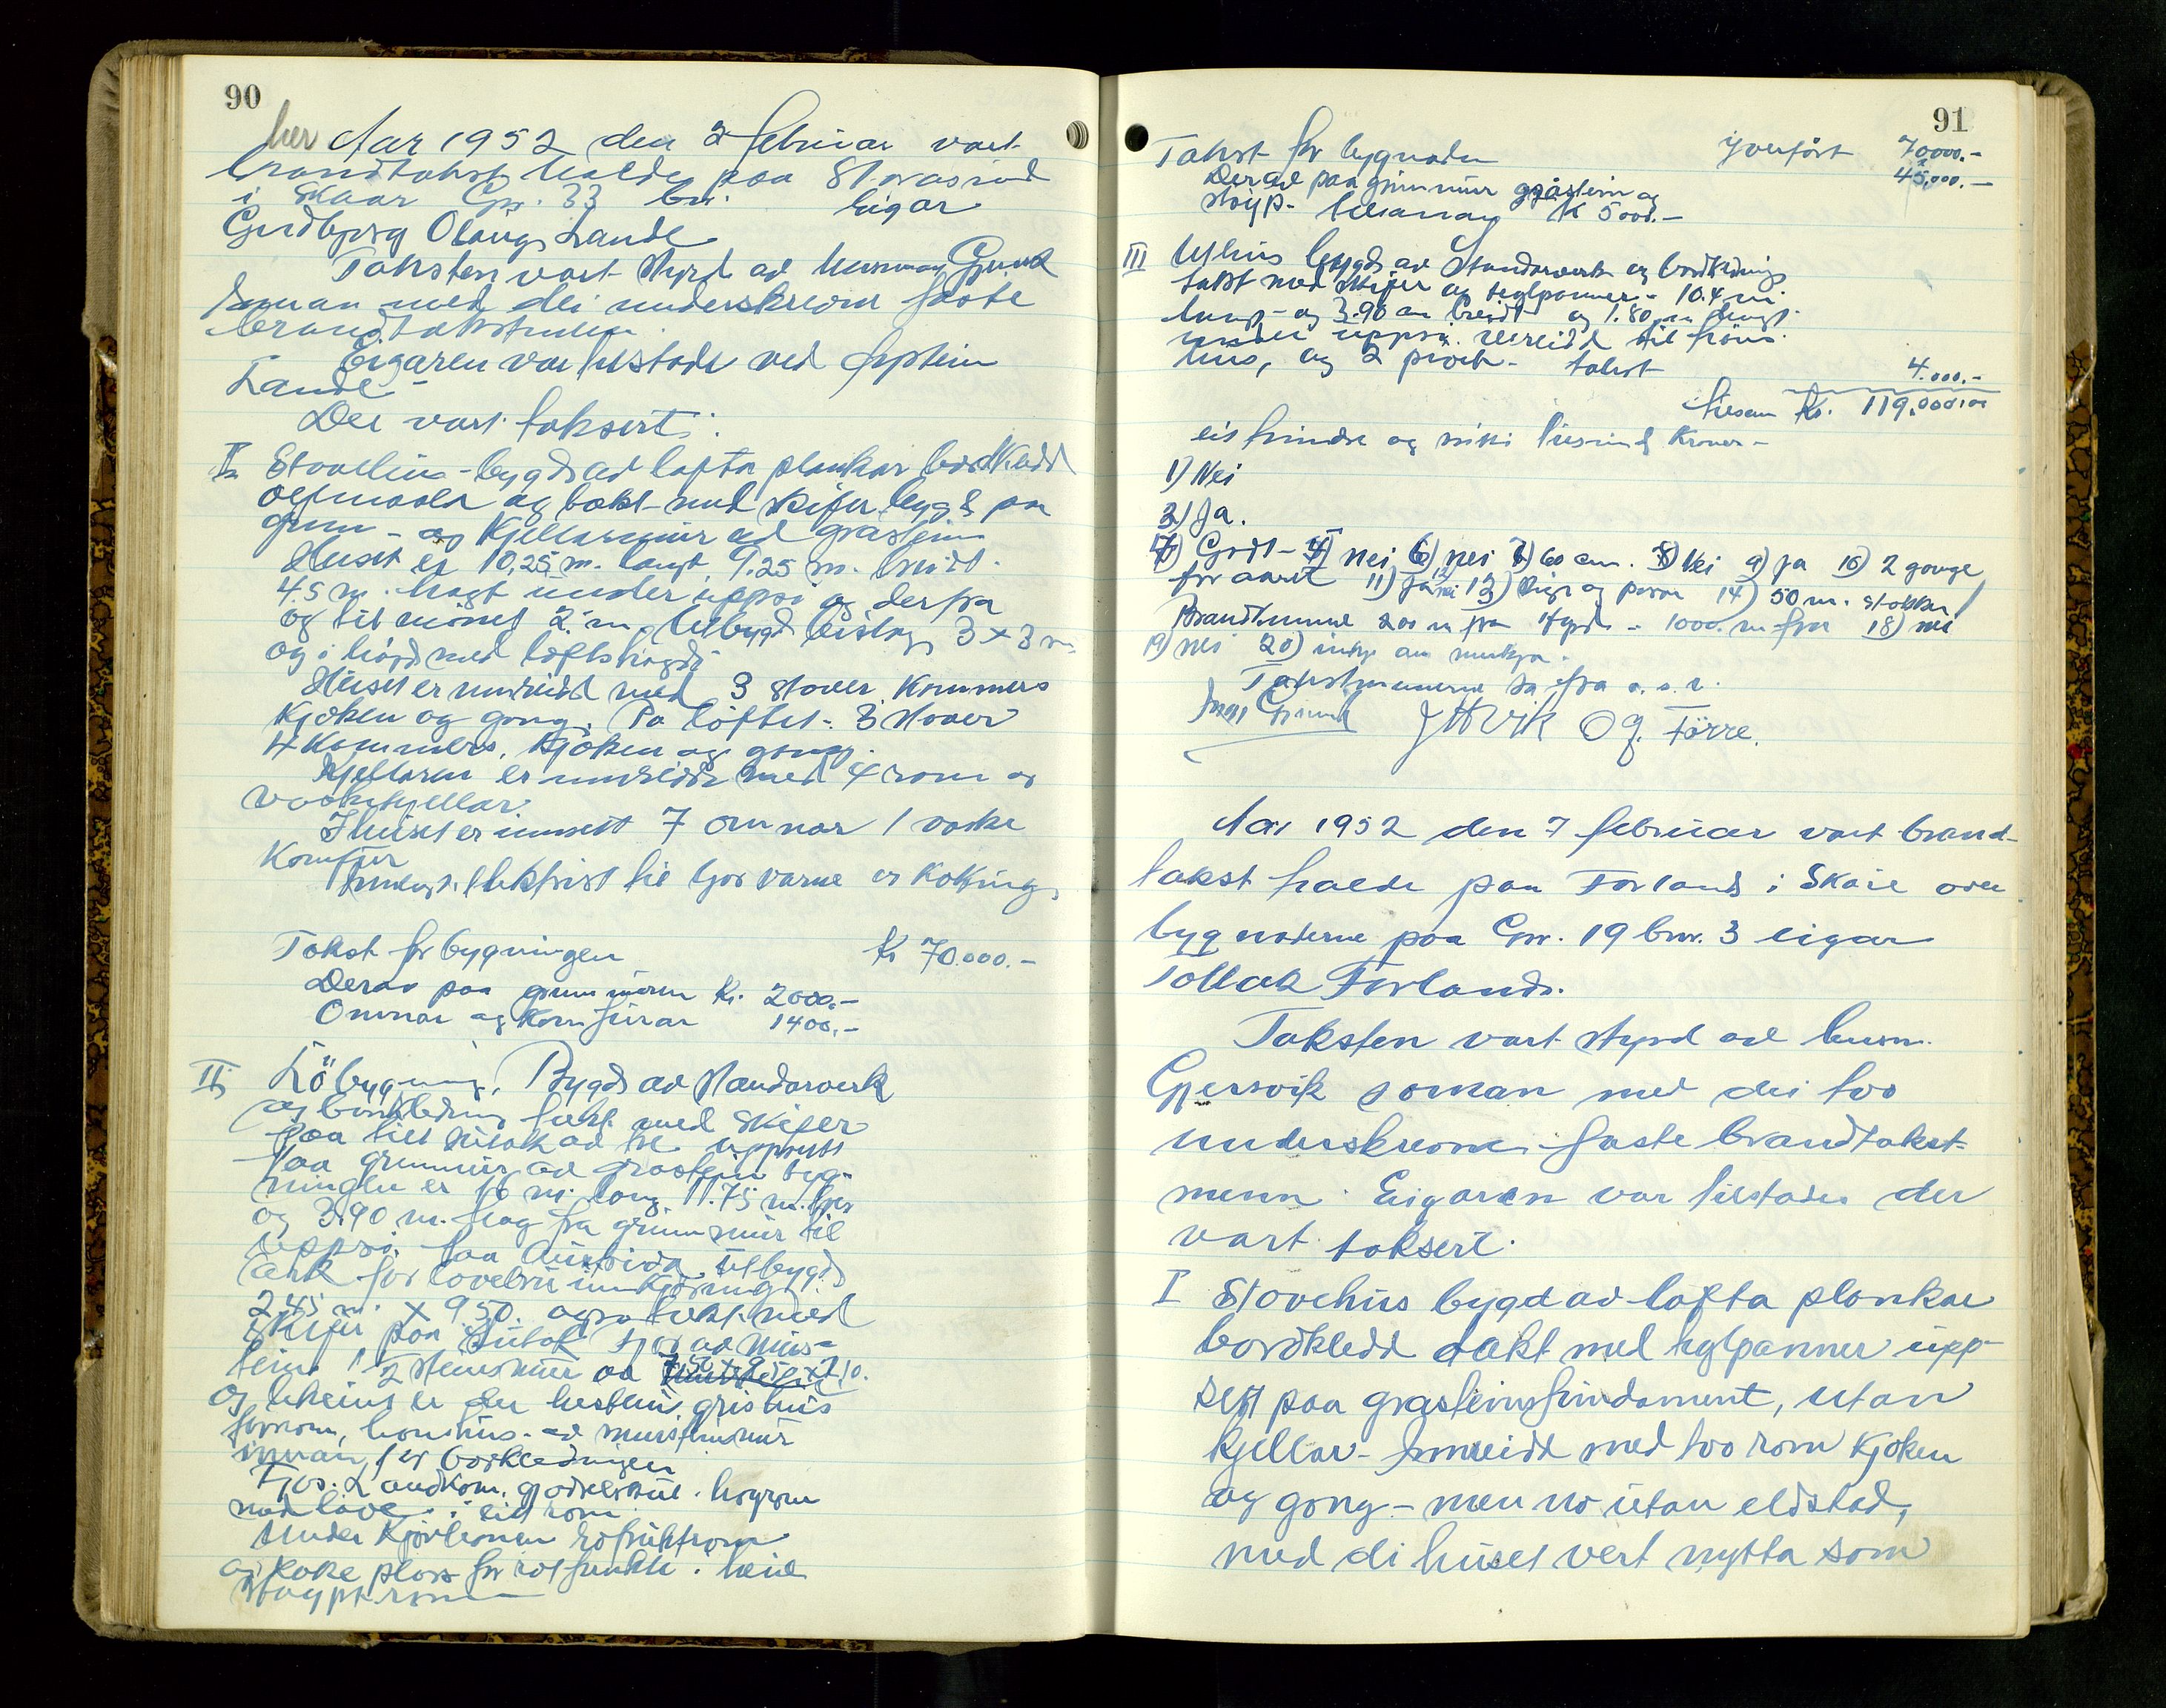 90
her Aar 1952 den 2 februar vart
brandtakst halde paa Storasund
i Skaar Gnr. 33 bn. Eigar
Gudbjørg Olaugs Lande
Taksten vart styrd av lensmann Grinde
saman med dei underskrevne faste
brandtakstmenn.
Eigaren var tilstade ved
Lande -
Der vart taksert:
I Stovehus - bygd av lafta plankar bordkledd
oljemaala og takt med skifer bygd paa
grunn- og Kjellarmur av graastein
Huset er 10,25 m. langt 9.25 m. breidt.
4.5 m. høgt under uppsi og derfra
og til mønet 2. m. utbygd bislag 3 x 3 m.
og i høgd med loftshøgd
Huset er innreidd med 3 stover, Kammers
Kjøken og gong. Pa loftet: 3 stover
4 Kammers, Kjøken og gong.
Kjellaren er innreidd med 4 rom og
vaskekjellar.
I huset er innsett 7 omnar 1 vaske
Komfur
elektrisk til ljos varme og Koking
Takst for bygningen Kr 70.000.-
Derav paa grunnmuren Kr. 2000.-
Omnar og Komfurar 1400.-
II Löbygning. Bygd av standarverk
og bordkledning takt med skifer
paa tett sutak av tre uppsett
paa grunnmur av graastein byg-
ningen er 16 m. lang 11.75 m. brei
og 3.90 m. høg fra grunnmur til
uppsi. Paa Austsida utbygd
ark for lovebru innkjøring
2.45 m. x 9.50. ogso takt med
skifer paa sutak Fjos av mur-
stein 1/2 steinsmur
og utheims er der hestehus, grishus
forrom, honshus - av mursteinsmur
innan for bordkledningen
Fjos. Landkom. gjodselskul. høyrom
med løve i eitt rom
Under Kjørbronen rotfruktrom
og plass for rotfrukt i heile
støypt rom
91
Takst for bygnaden yverført 70000.-
45,000.-
Derav paa grunnmur graastein og
støyp - tilsaman K 5000.-
III Uthus bygd av standarverk og bordkledning
takt med skifer og teglpanner - 10.4 m.
lang - og 3.90 m breidt og 1.80 m høgt
under uppsi. innreidd til høns
hus, og 2 takst
4.000.-
tilsam Kr. 119.000.00
eit hundre og nitti tusind Kroner -
1) Nei
3) Ja.
4) Godt - 5) nei 6) nei 7) 60 cm. 8) Nei 9) Ja 10) 2 gonge
for aaret 11) Ja 12) nei 13) 14) 50 m.
200 m fra - 1000. m fra 18) nei
19) nei 20) inkje aa merkja.
Takstmennene sa ifra o. s. v.
Grinde J H Vik O G. Förre.
Aar 1952 den 7 februar vart brand-
takst halde paa Forland i Skaare over
bygnaderne paa Gnr. 19 bnr. 3 eigar
Tollak Forland.
Taksten vart styrd av lensm.
Gjersvik saman med dei tvo
underskrevne faste brandtakst-
menn. Eigaren var tilstades der
vart taksert.
I Stovehus bygd av lafta plankar
bordkledd takt med teglpanner upp-
sett paa graasteinsfundament, utan
kjellar - Innreidd med tvo rom kjøken
og gong - men no utan eldstad,
med di huset vert nytta som